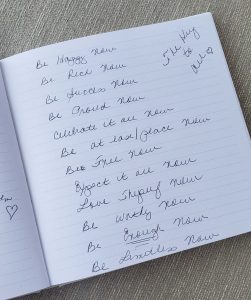 Be Happy Now
Be Rich Now
Be Success Now
Be Proud Now
Celebrate it all Now
Be at ease/peace Now
Be Free Now
Expect it all Now
Love Myself Now
Be Worthy Now
Be Enough Now
Be Limitless Now
The key
to
all